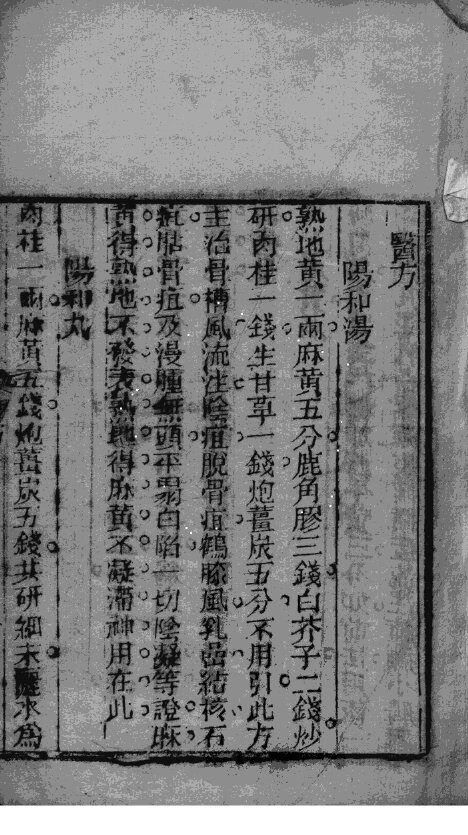 醫方
陽和湯
熟地黃一兩麻黃五分鹿角膠三錢白芥子二錢炒
研肉桂一錢生甘草一錢炮薑炭五分不用引此方
主治骨槽風流注陰疽脫骨疽鶴膝風乳岩結核石
疽貼骨疽及漫腫無頭平塌白陷一切陰凝等證麻
黃得熟地不發表熟地得麻黃不凝滯神用在此
陽和丸
肉桂一兩麻黃五錢炮薑炭五錢共研細末 水為